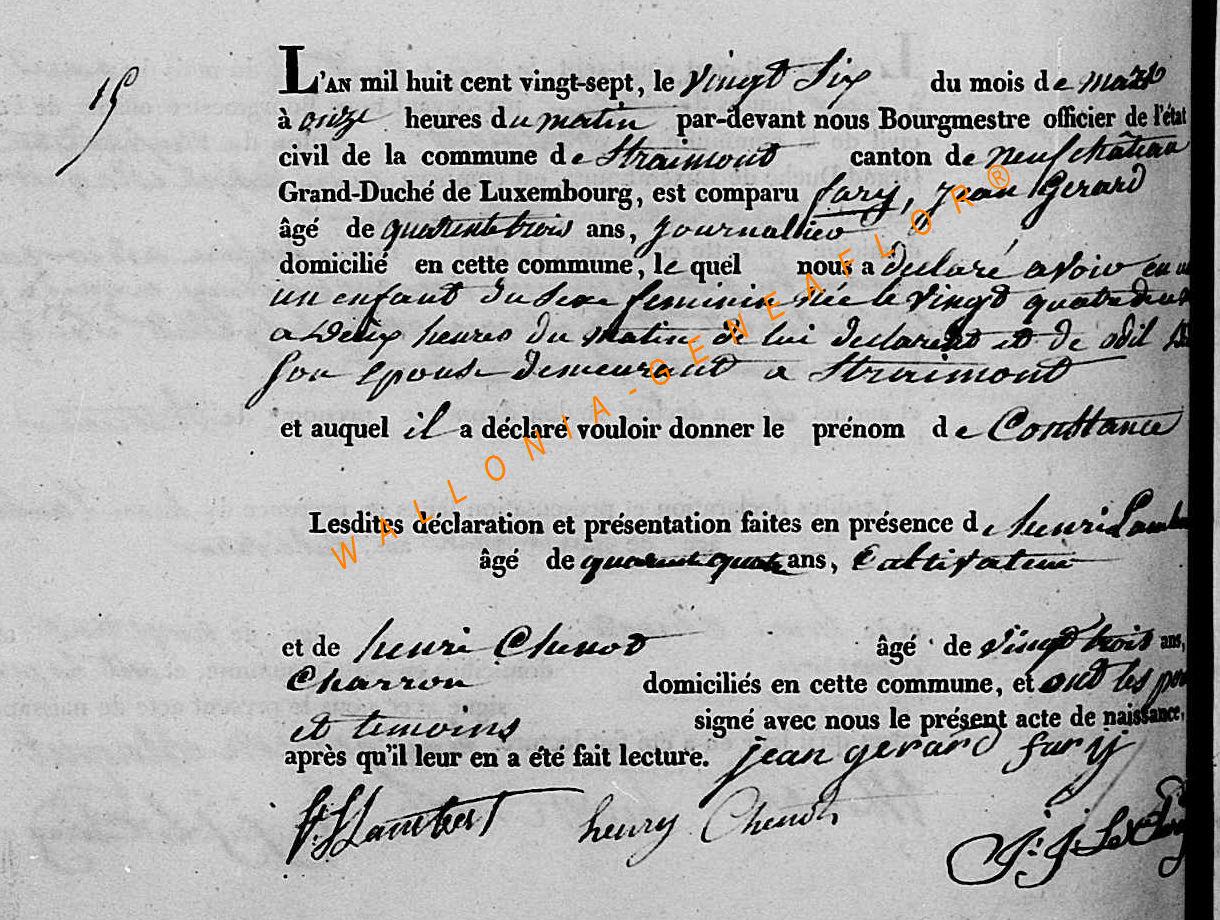 15
L'AN mil huit cent vingt-sept, le vingt Six du mois de mars
à onze heures du matin par-devant nous Bourgmestre officier de l'état
civil de la commune de Straimont canton de neufchâteau
Grand-Duché de Luxembourg, est comparu fary, jean Gerard
âgé de quarente trois ans, journallier
domicilié en cette commune, le quel nous a declaré avoir eu
un enfant du Sexe feminin née le vingt quatre
a Deux heures du matin de lui declarent et de odil
Son Epouse demeurant a Straimont
et auquel il a déclaré vouloir donner le prénom de Constance
Lesdites déclaration et présentation faites en présence de henri
âgé de quarente quatre ans, Cultivateur
et de henri Chenot âgé de vingt trois ans,
Charron domiciliés en cette commune, et ont les
et temoins signé avec nous le présent acte de naissance,
après qu'il leur en a été fait lecture. jean gerard farij
Lambert henry Chenot
WALLONIA-GENEAFLOR®